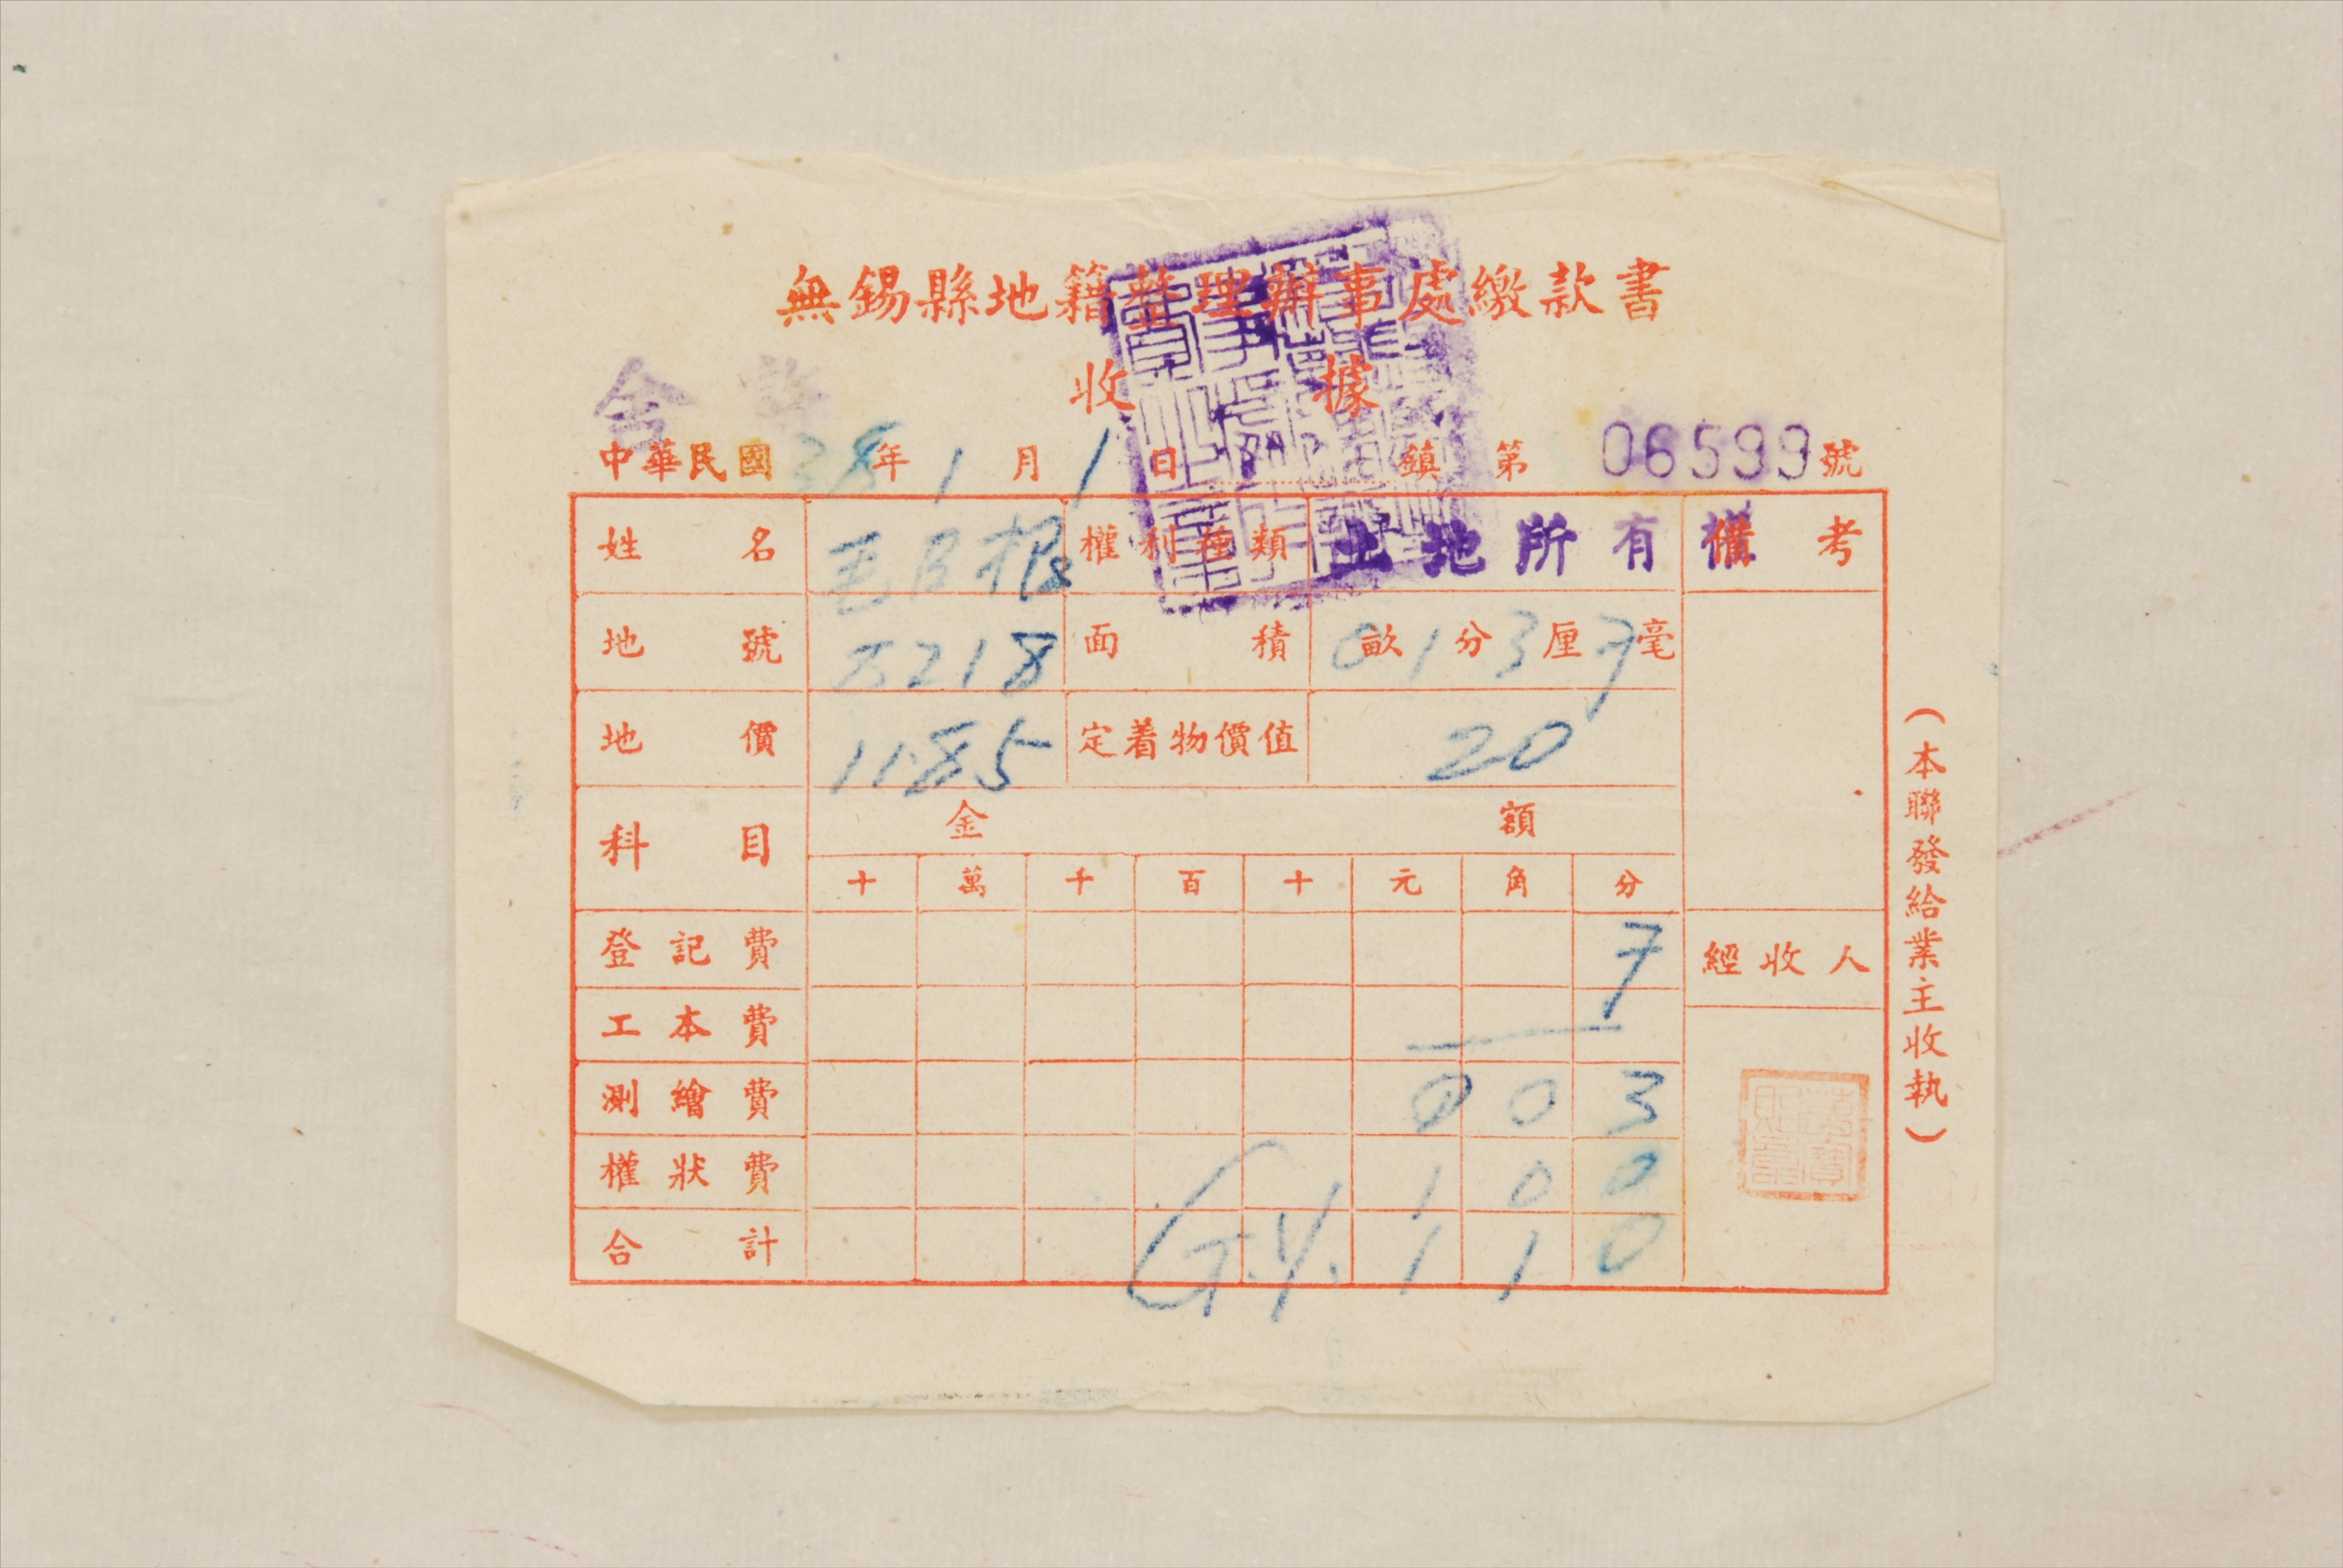 無錫縣地籍整理辦事處繳款書
收據
中華民國38年1月1日 鎮第06599號
姓名 毛 根 權利種類 土地所有權 備考
地號 5218 面積 0畝1分3厘7毫
地價 11.85 定着物價值 20
科目 金額
十 萬 千 百 十 元 角 分
登記費 7
經收人
工本費 —
測繪費 0 0 3
權狀費 1 0 0
合計 G.Y. 1 1 0
（本聯發給業主收執）